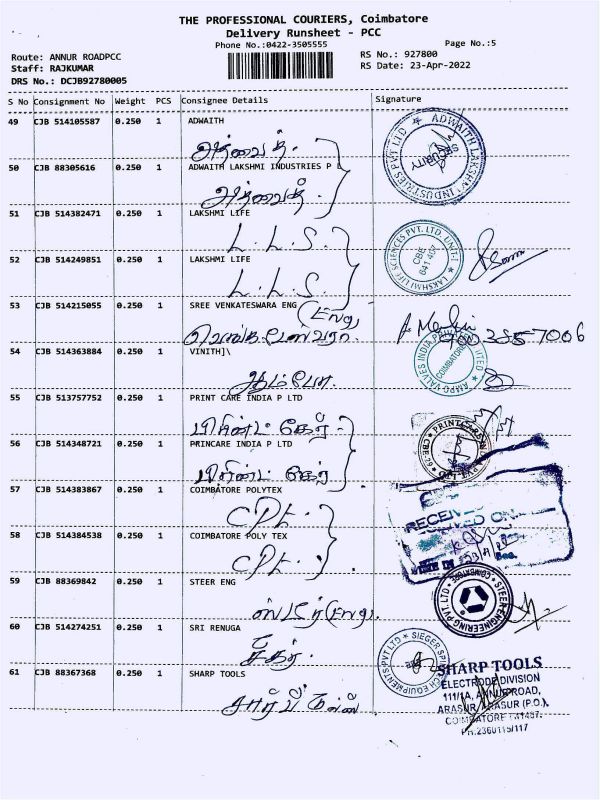 THE PROFESSIONAL COURIERS, Coimbatore
Delivery Runsheet - PCC
Phone No.:0422-3505555
Page No.:5
Route: ANNUR ROADPCC
RS No.: 927800
Staff: RAJKUMAR
RS Date: 23-Apr-2022
DRS No.: DCJB92780005
S No Consignment No Weight PCS Consignee Details Signature
49 CJB 514105587 0.250 1 ADWAITH
அத்வைத்.
50 CJB 88305616 0.250 1 ADWAITH LAKSHMI INDUSTRIES P L
அத்வைத்.
ADWAITH LAKSHMI INDUSTRIES PVT LTD
SECURITY
51 CJB 514382471 0.250 1 LAKSHMI LIFE
L. L. S.
52 CJB 514249851 0.250 1 LAKSHMI LIFE
L. L. S.
LAKSHMI LIFE SCIENCES PVT. LTD. UNIT-1
CBE
641 407
53 CJB 514215055 0.250 1 SREE VENKATESWARA ENG
(Eng
வெங்கடேஸ்வரா.
54 CJB 514363884 0.250 1 VINITH]\
ஆம்போ.
AMPO VALVES INDIA PRIVATE LIMITED
COIMBATORE
55 CJB 513757752 0.250 1 PRINT CARE INDIA P LTD
பிரிண்ட் கேர் -
56 CJB 514348721 0.250 1 PRINCARE INDIA P LTD
பிரிண்ட் கேர்
57 CJB 514383867 0.250 1 COIMBATORE POLYTEX
CPt.
58 CJB 514384538 0.250 1 COIMBATORE POLY TEX
CPt.
RECEIVED ON
59 CJB 88369842 0.250 1 STEER ENG
ஸ்டீர் (Eng.
STEER ENGINEERING PVT. LTD.
COIMBATORE
60 CJB 514274251 0.250 1 SRI RENUGA
SIEGER SPINTECH EQUIPMENTS PVT LTD
61 CJB 88367368 0.250 1 SHARP TOOLS
சார்ப் டூல்ஸ்
SHARP TOOLS
ELECTRODE DIVISION
111/1A, ANNUR ROAD,
ARASUR, ARASUR (P.O.),
COIMBATORE - 641407.
PH:2360115/117